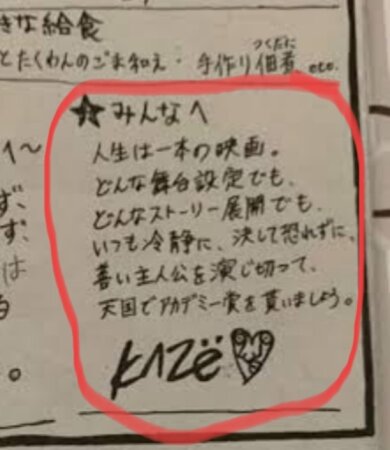 きな給食
とたくわんのごま和え・手作り佃煮 etc.
つくだに
★みんなへ
人生は一本の映画。
どんな舞台設定でも、
どんなストーリー展開でも、
いつも冷静に、決して恐れずに、
善い主人公を演じ切って、
天国でアカデミー賞を貰いましょう。
KAZë
い〜
ず、
ず、
は
。